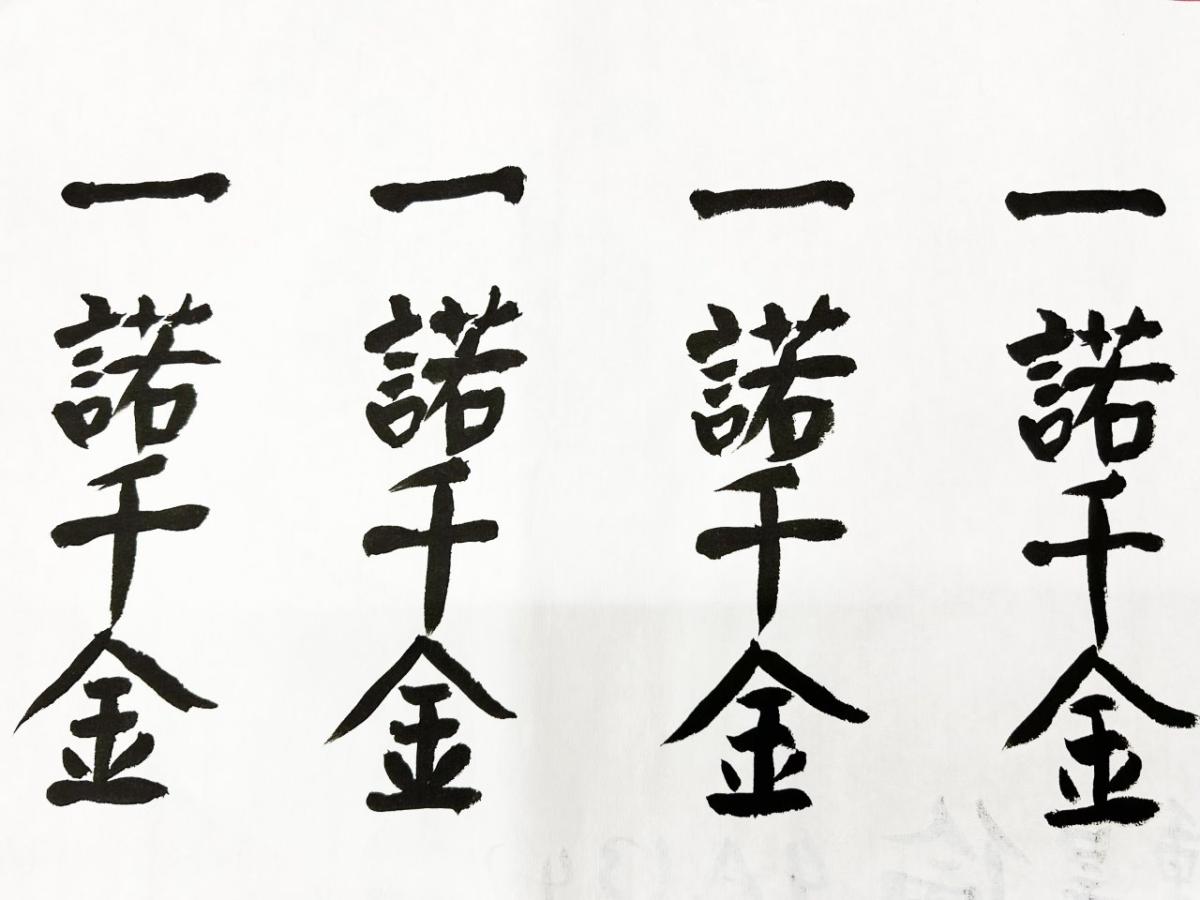 一諾千金
一諾千金
一諾千金
一諾千金